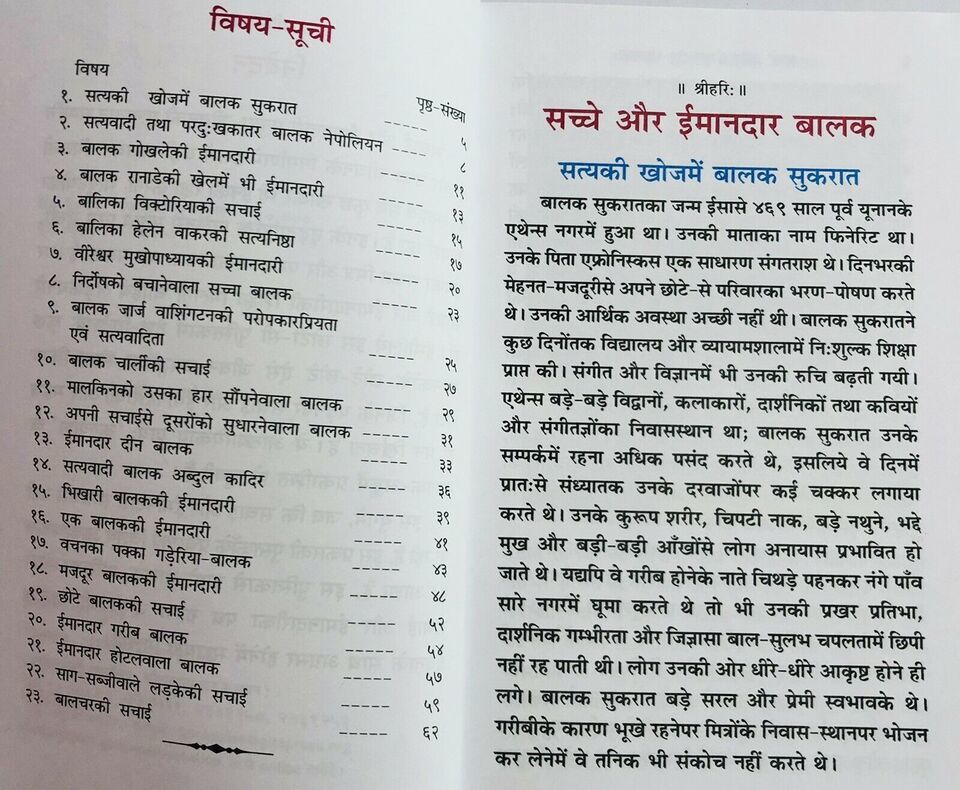 विषय-सूची
विषय
पृष्ठ-संख्या
१. सत्यकी खोजमें बालक सुकरात ----- ५
२. सत्यवादी तथा परदुःखकातर बालक नेपोलियन ----- ८
३. बालक गोखलेकी ईमानदारी ----- ११
४. बालक रानाडेकी खेलमें भी ईमानदारी ----- १३
५. बालिका विक्टोरियाकी सचाई ----- १५
६. बालिका हेलेन वाकरकी सत्यनिष्ठा ----- १७
७. वीरेश्वर मुखोपाध्यायकी ईमानदारी ----- २०
८. निर्दोषको बचानेवाला सच्चा बालक ----- २३
९. बालक जार्ज वाशिंगटनकी परोपकारप्रियता
एवं सत्यवादिता ----- २५
१०. बालक चार्लीकी सचाई ----- २७
११. मालकिनको उसका हार सौंपनेवाला बालक ----- २९
१२. अपनी सचाईसे दूसरोंको सुधारनेवाला बालक ----- ३१
१३. ईमानदार दीन बालक ----- ३३
१४. सत्यवादी बालक अब्दुल कादिर ----- ३६
१५. भिखारी बालककी ईमानदारी ----- ३९
१६. एक बालककी ईमानदारी ----- ४१
१७. वचनका पक्का गड़ेरिया-बालक ----- ४३
१८. मजदूर बालककी ईमानदारी ----- ४८
१९. छोटे बालककी सचाई ----- ५२
२०. ईमानदार गरीब बालक ----- ५४
२१. ईमानदार होटलवाला बालक ----- ५७
२२. साग-सब्जीवाले लड़केकी सचाई ----- ५९
२३. बालचरकी सचाई ----- ६२
॥ श्रीहरिः॥
सच्चे और ईमानदार बालक
सत्यकी खोजमें बालक सुकरात
बालक सुकरातका जन्म ईसासे ४६९ साल पूर्व यूनानके
एथेन्स नगरमें हुआ था। उनकी माताका नाम फिनेरिट था।
उनके पिता एफ्रोनिस्कस एक साधारण संगतराश थे। दिनभरकी
मेहनत-मजदूरीसे अपने छोटे-से परिवारका भरण-पोषण करते
थे। उनकी आर्थिक अवस्था अच्छी नहीं थी। बालक सुकरातने
कुछ दिनोंतक विद्यालय और व्यायामशालामें निःशुल्क शिक्षा
प्राप्त की। संगीत और विज्ञानमें भी उनकी रुचि बढ़ती गयी।
एथेन्स बड़े-बड़े विद्वानों, कलाकारों, दार्शनिकों तथा कवियों
और संगीतज्ञोंका निवासस्थान था; बालक सुकरात उनके
सम्पर्कमें रहना अधिक पसंद करते थे, इसलिये वे दिनमें
प्रातःसे संध्यातक उनके दरवाजोंपर कई चक्कर लगाया
करते थे। उनके कुरूप शरीर, चिपटी नाक, बड़े नथुने, भद्दे
मुख और बड़ी-बड़ी आँखोंसे लोग अनायास प्रभावित हो
जाते थे। यद्यपि वे गरीब होनेके नाते चिथड़े पहनकर नंगे पाँव
सारे नगरमें घूमा करते थे तो भी उनकी प्रखर प्रतिभा,
दार्शनिक गम्भीरता और जिज्ञासा बाल-सुलभ चपलतामें छिपी
नहीं रह पाती थी। लोग उनकी ओर धीरे-धीरे आकृष्ट होने ही
लगे। बालक सुकरात बड़े सरल और प्रेमी स्वभावके थे।
गरीबीके कारण भूखे रहनेपर मित्रोंके निवास-स्थानपर भोजन
कर लेनेमें वे तनिक भी संकोच नहीं करते थे।